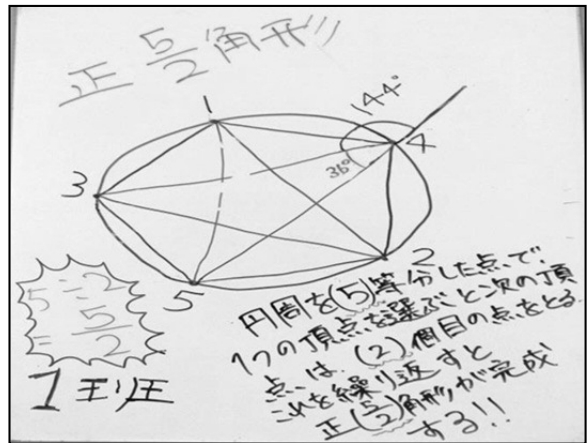 正 5/2 角形
1
144°
4
36°
3
2
5
5÷2
= 5/2
円周を(5)等分した点で
1つの頂点を選ぶと次の頂
点は、(2)個目の点をとる
これを繰り返すと
正(5/2)角形が完成
する!!